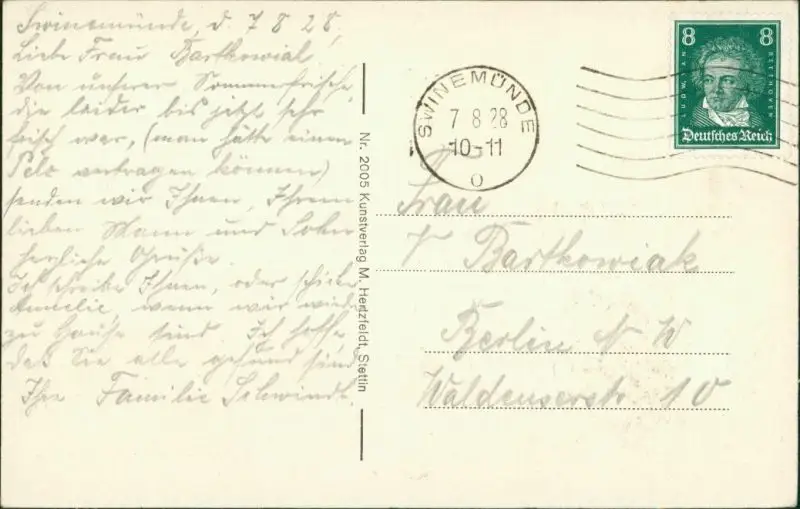 Swinemünde, d. 7 8 28,
Liebe Frau Bartkowial,
Von unserer Sommerfrische,
die leider bis jetzt sehr
frisch war, (man hätte einen
Pelz vertragen können)
senden wir Ihnen, Ihrem
lieben Mann und Sohn
herzliche Grüße.
Ich schreibe Ihnen, oder schicke
Annelie, wenn wir wieder
zu Hause sind. Ich hoffe
daß Sie alle gesund sind
Ihre Familie Schwindt.
Nr. 2005 Kunstverlag M. Hertzfeldt, Stettin
SWINEMÜNDE
7 8 28
10-11
o
8 8
LUDWIG VAN BEETHOVEN
Deutsches Reich
Frau
Bartkowiak
Berlin N W
Waldenserstr. 10